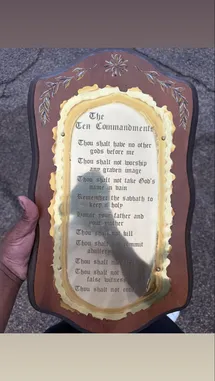 The
Ten Commandments
Thou shalt have no other
gods before me
Thou shalt not worship
any graven image
Thou shalt not take God's
name in vain
Remember the sabbath to
keep it holy
Honor your father and
your mother
Thou shalt not kill
Thou shalt not commit
adultery
Thou shalt not
Thou shalt not
false witness
Thou shalt not